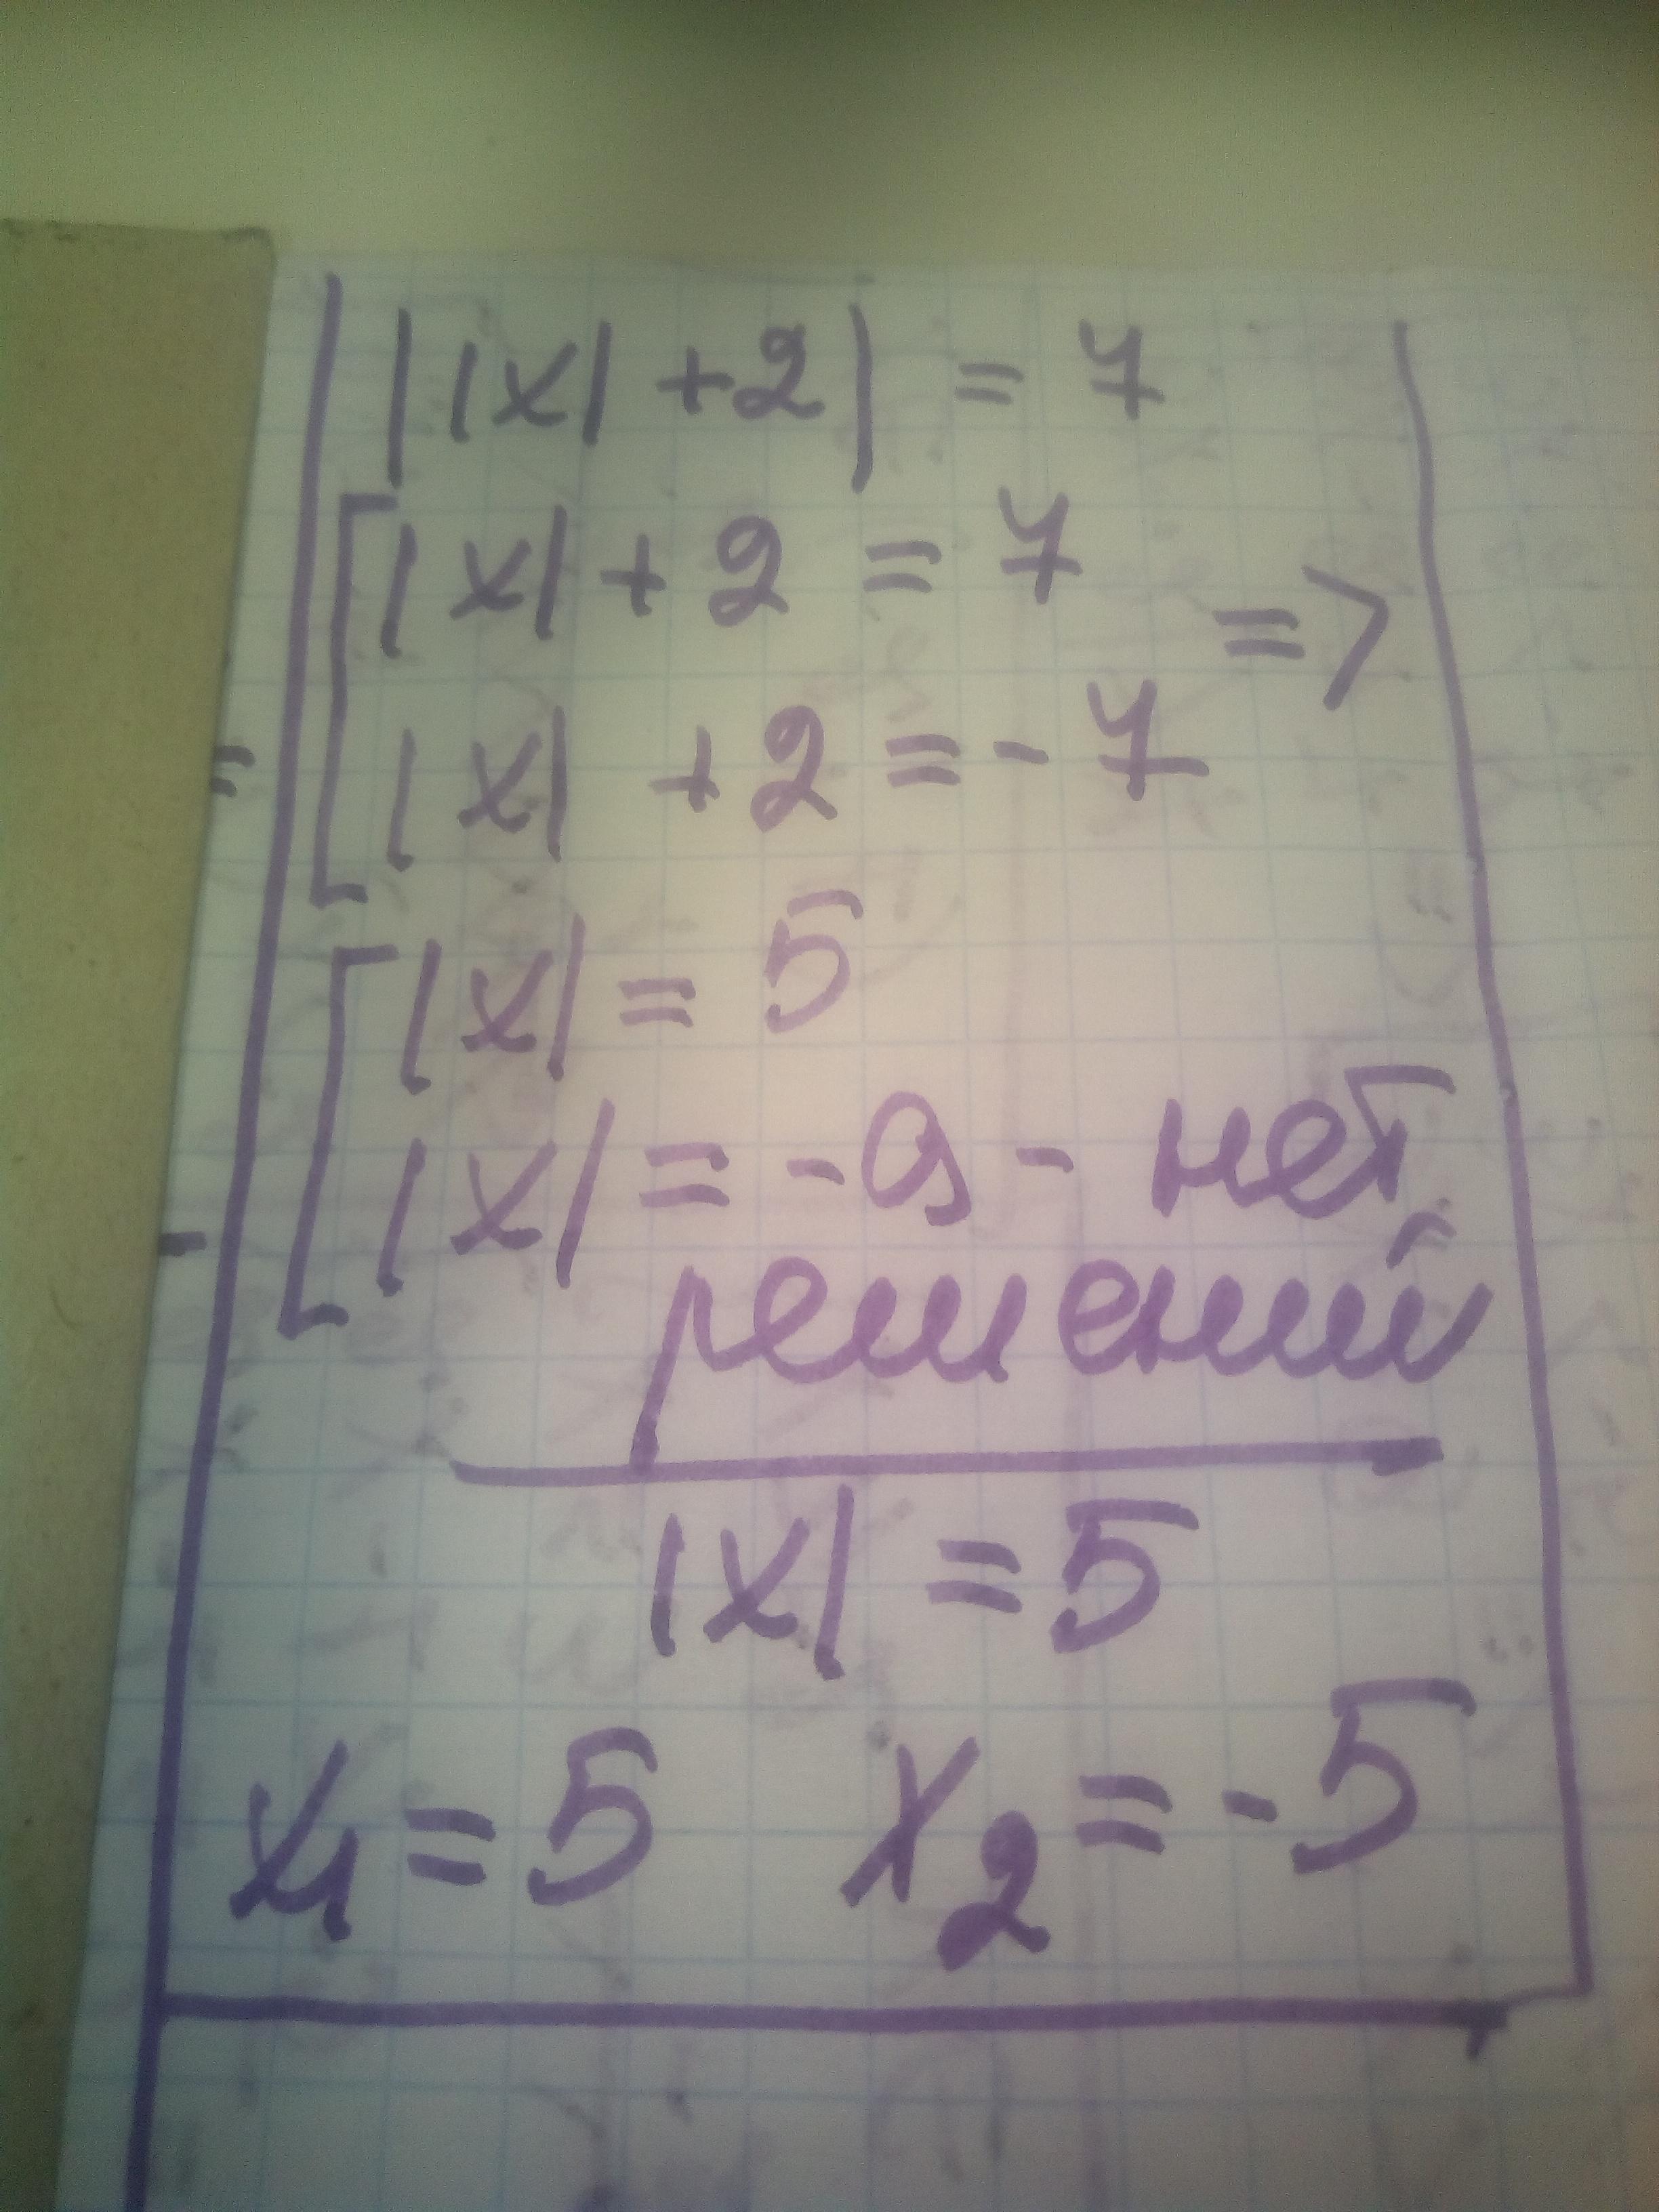 ||x| + 2| = 7
|x| + 2 = 7
=>
|x| + 2 = - 7
|x| = 5
|x| = - 9 - нет
решений
|x| = 5
x1 = 5 x2 = - 5